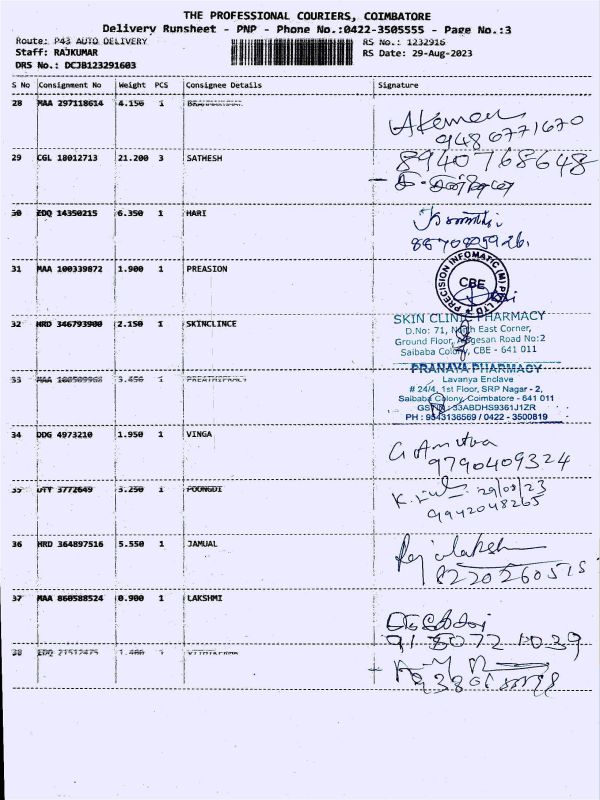 THE PROFESSIONAL COURIERS, COIMBATORE
Delivery Runsheet - PNP - Phone No.:0422-3505555 - Page No.:3
Route: P43 AUTO DELIVERY
RS No.: 1232916
Staff: RAJKUMAR
RS Date: 29-Aug-2023
DRS No.: DCJB123291603
S No Consignment No Weight PCS Consignee Details Signature
28 MAA 297118614 4.150 1
9486771670
29 CGL 18012713 21.200 3 SATHESH
8940768648
30 EDQ 14350215 6.350 1 HARI
31 MAA 100339872 1.900 1 PREASION
PRECISION INFOMATIC (M) PVT LTD
CBE
32 HRD 346793900 2.150 1 SKINCLINCE
SKIN CLINIC PHARMACY
D.No: 71, North East Corner,
Ground Floor, Road No:2
Saibaba Colony, CBE - 641 011
33 MAA 3.450 1
PRANAYA PHARMACY
Lavanya Enclave
# 24/4, 1st Floor, SRP Nagar - 2,
Saibaba Colony, Coimbatore - 641 011
GSTIN: 33ABDHS9361J1ZR
PH : 9543136569 / 0422 - 3500819
34 DDG 4973210 1.950 1 VINGA
9790409324
35 3772649 3.250 1 POONGDI
29/08/23
9942048265
36 HRD 364897516 5.550 1 JAMUAL
8220260515
37 MAA 860588524 0.900 1 LAKSHMI
38 EDQ 21512475 1.400 1